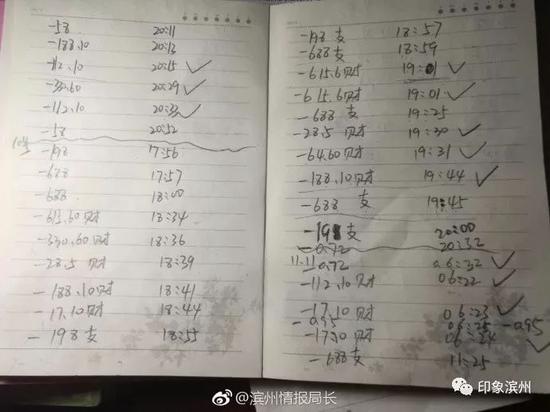 -58 20:11
-188.10 20:13
-112.10 20:15 ✓
-330.60 20:29 ✓
-112.10 20:33 ✓
-58 20:52
-198 17:56
-688 17:57
-688 18:00
-615.60财 18:34
-330.60财 18:36
-28.5财 18:39
-188.10财 18:41
-17.10财 18:44
-198支 18:55
-198支 18:57
-688支 18:59
-615.6财 19:01 ✓
-615.6财 19:01 ✓
-688支 19:25
-28.5财 19:30 ✓
-64.60财 19:31 ✓
-188.10财 19:44 ✓
-688支 19:45
-198支 20:00
-0.72 20:32
11.11 -0.72 06:32 ✓
-112.10财 06:22 ✓
-17.10财 06:23 ✓
-0.95 06:25 -0.95
-17.10财 06:24 ✓
-688支 11:25
@滨州情报局长
印象滨州